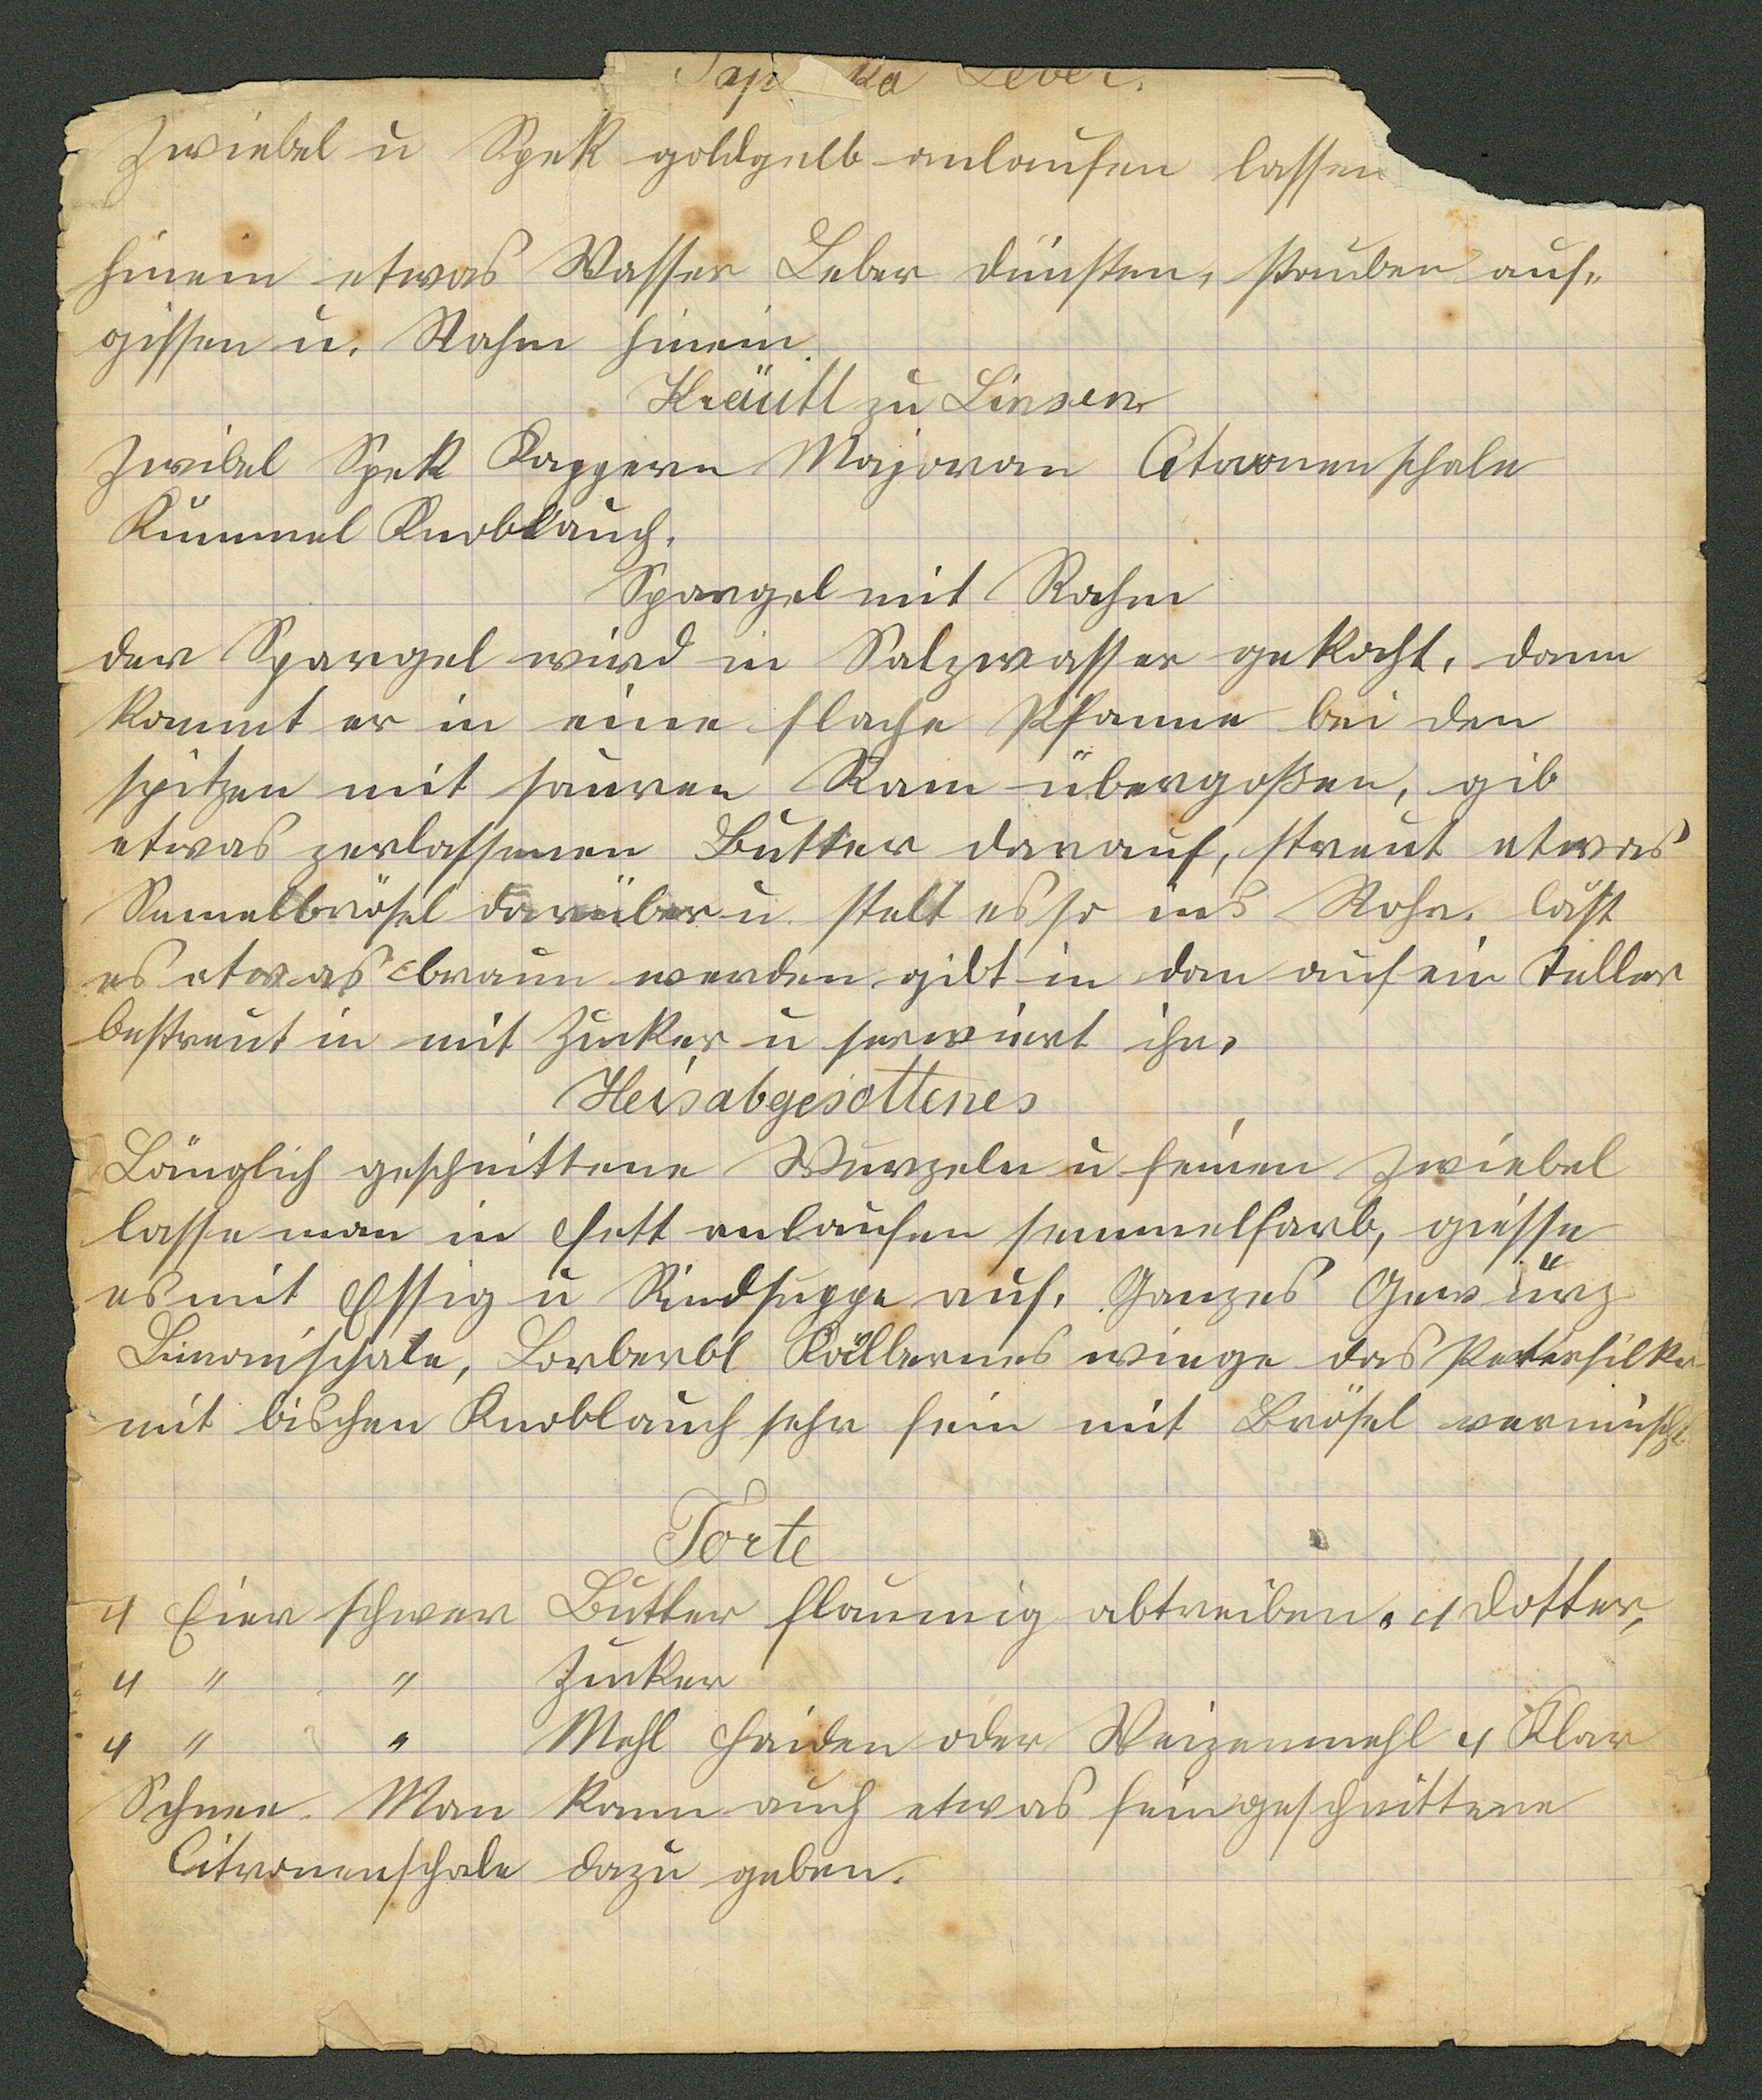 Pap ka Leber.
Zwiebel u Spek goldgelb anlaufen lassen
hinein etwas Wasser Leber dünsten, stauben auf-
gissen u. Rahm hinein.
Kräutl zu Linsen
Zwibel Spek Kappern Majoran Citronenschale
Kümmel Knoblauch.
Spargel mit Rahm
der Spargel wird in Salzwasser gekocht, dann
kommt er in eine flache Pfanne bei den
spitzen mit sauren Ram übergoßen, gib
etwas zerlassenen Butter darauf, streut etwas
Semelbrösel darüber u. stelt es so ins Rohr. läst
es etwas braun werden gibt in dan auf ein Teller
bestreut in mit Zucker u serwiert ihn.
Heisabgesottenes
Länglich geschnittene Wurzeln u feinen Zwiebel
lasse man in Fett anlaufen semmelfarb, giesse
es mit Essig u Rindsuppe auf. Ganzes Gewürz
Limonischale, Lorberbl Kälbernes wiege das Petersilke
mit bischen Knoblauch sehr fein mit Brösel vermischt
Torte
4 Eier schwer Butter flaumig abtreiben. 4 Dotter,
4 " " Zucker
4 " " Mehl Haiden oder Weizenmehl 4 Klar
Schnee. Man kann auch etwas feingeschnittene
Citronenschale dazu geben.